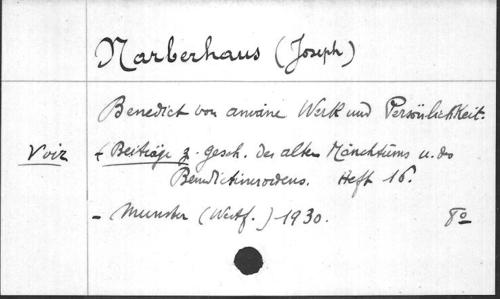 Narberhaus (Joseph)
Benedict von aniane Werk und Persönlichkeit.
Voir ( Beiträge z. gesch. des alten Mönchtums u. des
Benedictinerordens. Heft 16.
- Munster (Westf.) 1930. 8º